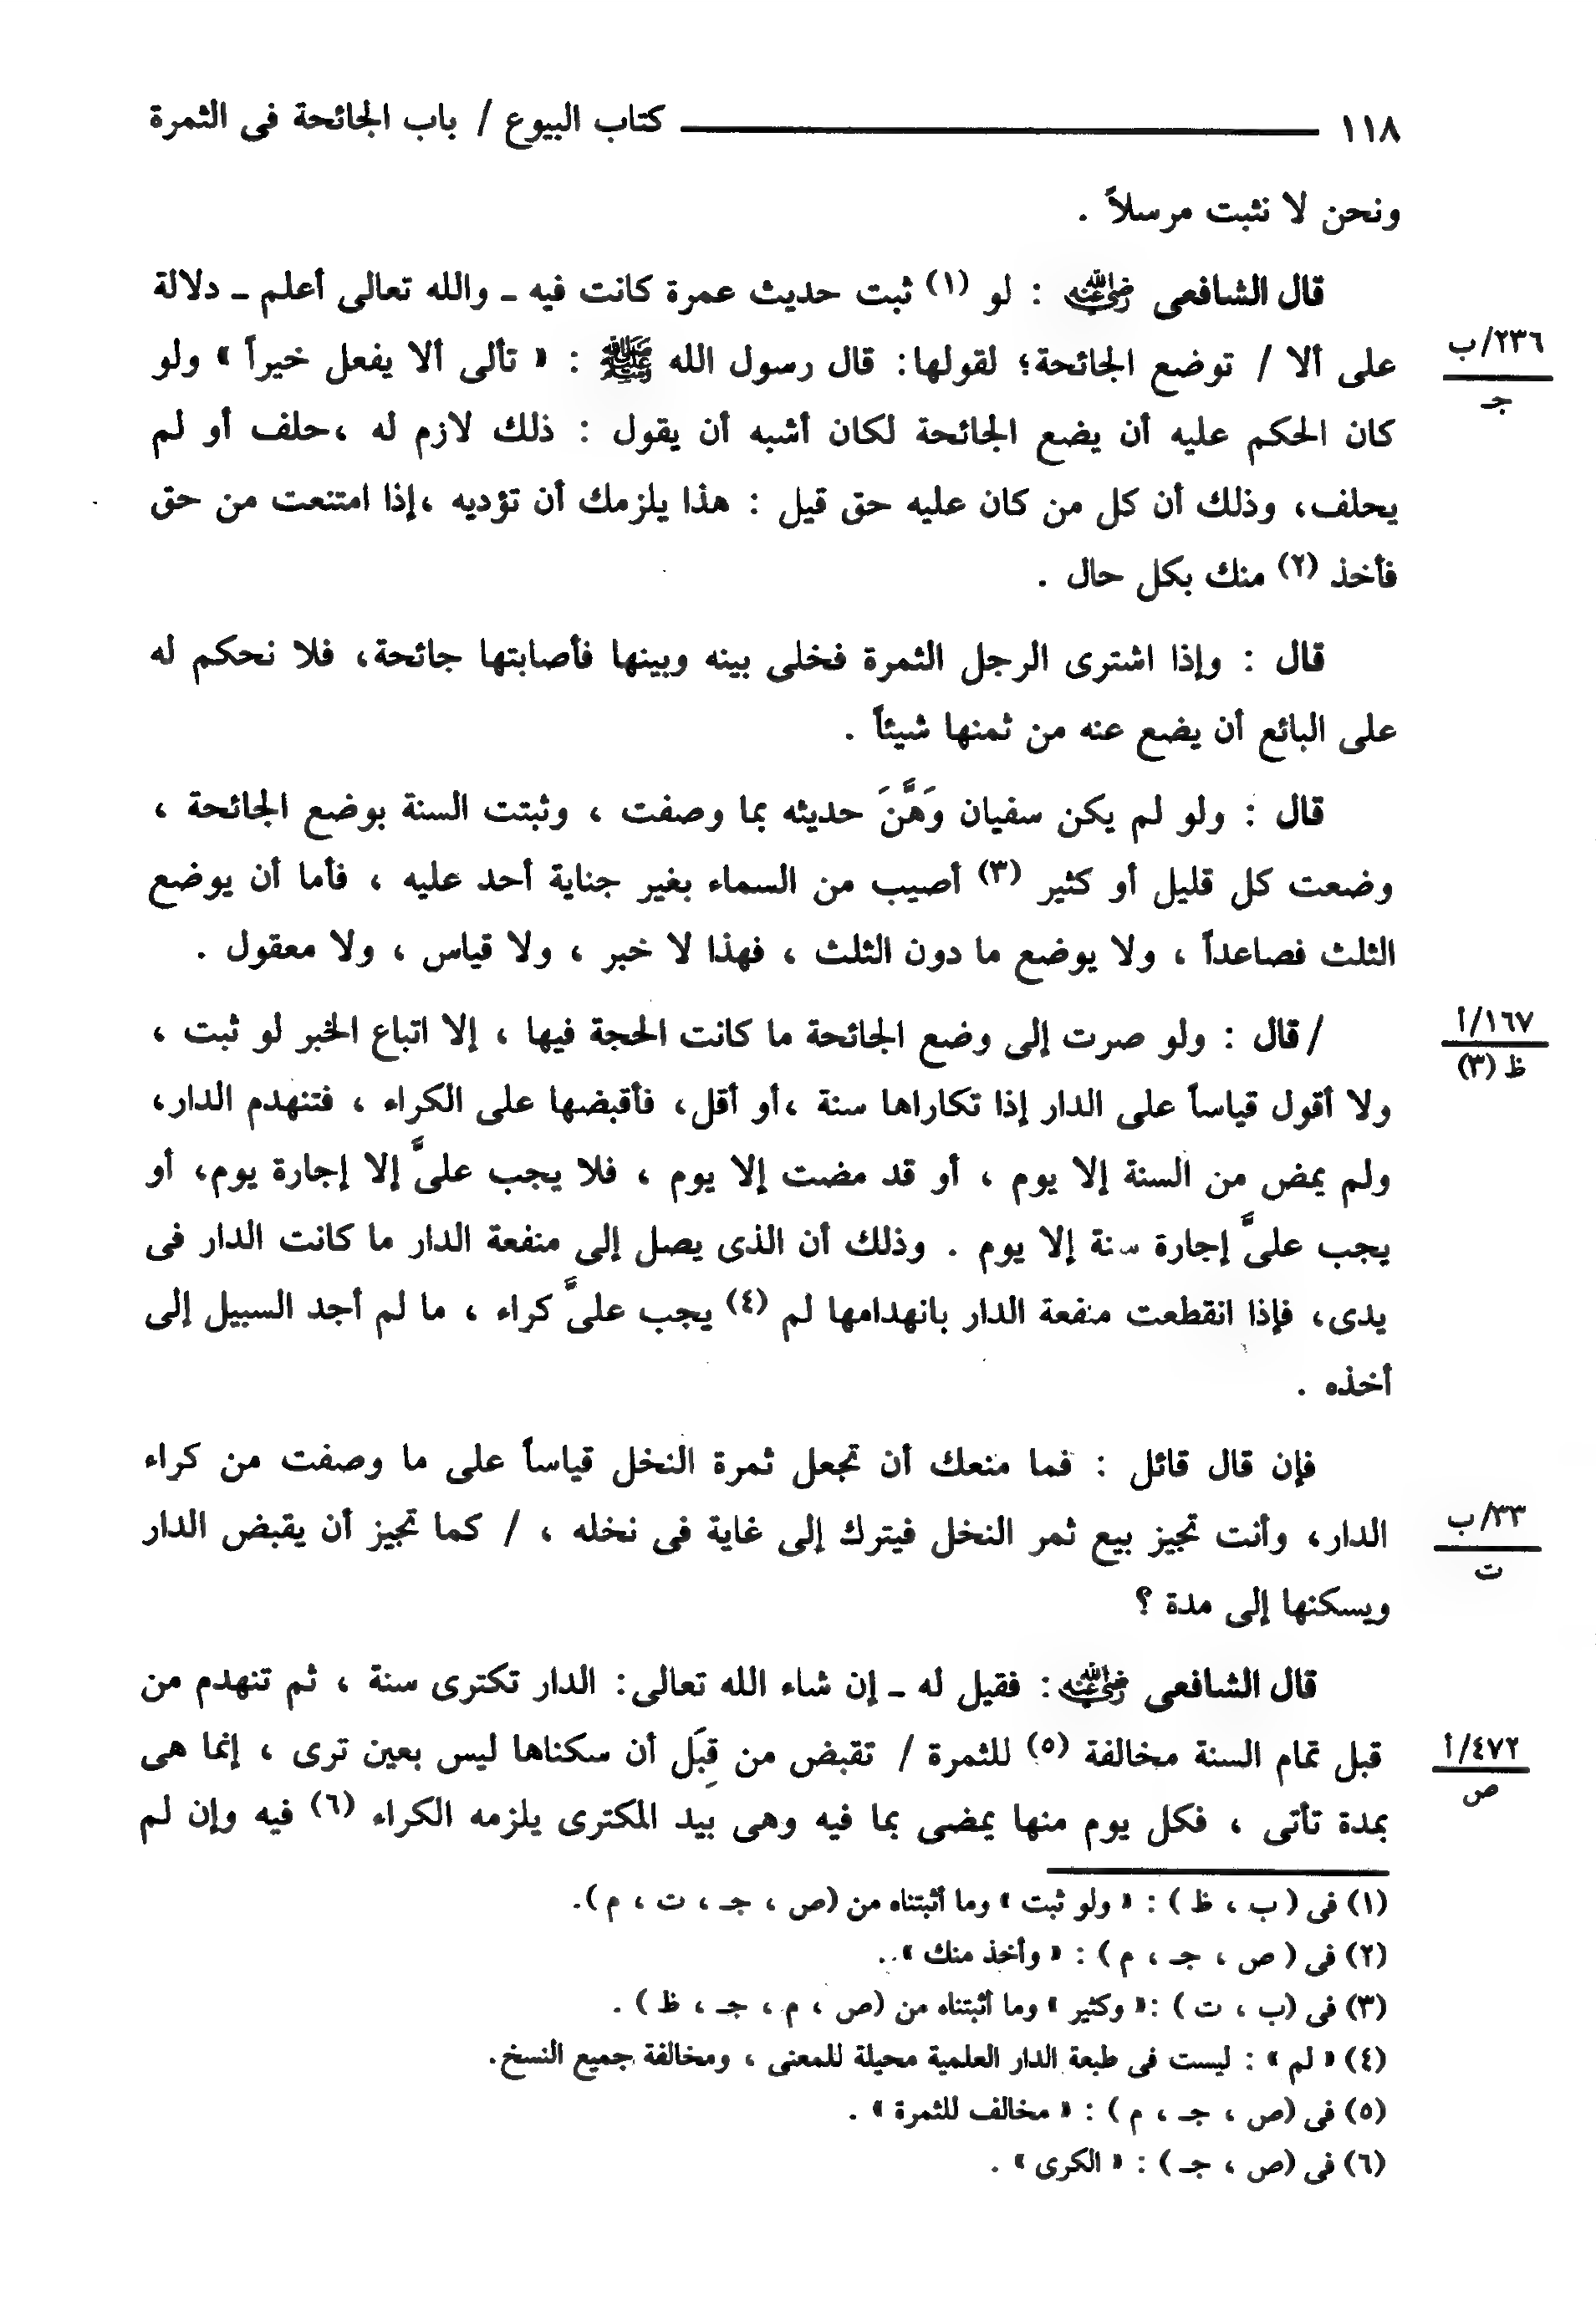 ١١٨ كتاب البيوع / باب الجائحة فى الثمرة
ونحن لا نثبت مرسلاً .
قال الشافعى رضي الله عنه : لو (١) ثبت حديث عمرة كانت فيه ـ والله تعالى أعلم ـ دلالة
على ألا / توضع الجائحة؛ لقولها: قال رسول الله ﷺ : « تألى ألا يفعل خيراً » ولو
٢٣٦/ب
جـ
كان الحكم عليه أن يضع الجائحة لكان أشبه أن يقول : ذلك لازم له ،حلف أو لم
يحلف، وذلك أن كل من كان عليه حق قيل : هذا يلزمك أن تؤديه ،إذا امتنعت من حق
فأخذ (٢) منك بكل حال .
قال : وإذا اشترى الرجل الثمرة فخلى بينه وبينها فأصابتها جائحة، فلا نحكم له
على البائع أن يضع عنه من ثمنها شيئاً .
قال : ولو لم يكن سفيان وَهَّنَ حديثه بما وصفت ، وثبتت السنة بوضع الجائحة ،
وضعت كل قليل أو كثير (٣) أصيب من السماء بغير جناية أحد عليه ، فأما أن يوضع
الثلث فصاعداً ، ولا يوضع ما دون الثلث ، فهذا لا خبر ، ولا قياس ، ولا معقول .
/ قال : ولو صرت إلى وضع الجائحة ما كانت الحجة فيها ، إلا اتباع الخبر لو ثبت ،
١٦٧/أ
ظ (٣)
ولا أقول قياساً على الدار إذا تكاراها سنة ،أو أقل، فأقبضها على الكراء ، فتنهدم الدار،
ولم يمض من السنة إلا يوم ، أو قد مضت إلا يوم ، فلا يجب علىَّ إلا إجارة يوم، أو
يجب علىَّ إجارة سنة إلا يوم . وذلك أن الذى يصل إلى منفعة الدار ما كانت الدار فى
يدى، فإذا انقطعت منفعة الدار بانهدامها لم (٤) يجب علىَّ كراء ، ما لم أجد السبيل إلى
أخذه .
فإن قال قائل : فما منعك أن تجعل ثمرة النخل قياساً على ما وصفت من كراء
الدار، وأنت تجيز بيع ثمر النخل فيترك إلى غاية فى نخله ، / كما تجيز أن يقبض الدار
٣٣/ب
ت
ويسكنها إلى مدة ؟
قال الشافعى رضي الله عنه : فقيل له ـ إن شاء الله تعالى: الدار تكترى سنة ، ثم تنهدم من
قبل تمام السنة مخالفة (٥) للثمرة / تقبض من قِبَل أن سكناها ليس بعين ترى ، إنما هى
٤٧٢/أ
ص
بمدة تأتى ، فكل يوم منها يمضى بما فيه وهى بيد المكترى يلزمه الكراء (٦) فيه وإن لم
(١) فى ( ب ، ظ ) : « ولو ثبت » وما أثبتناه من (ص ، جـ ، ت ، م ).
(٢) فى ( ص ، جـ ، م ) : « وأخذ منك » .
(٣) فى (ب ، ت ) :« وكثير » وما أثبتناه من (ص ، م ، جـ ، ظ ) .
(٤) « لم » : ليست فى طبعة الدار العلمية محيلة للمعنى ، ومخالفة جميع النسخ.
(٥) فى (ص ، جـ ، م ) : « مخالف للثمرة » .
(٦) فى (ص ، جـ ) : « الكرى » .